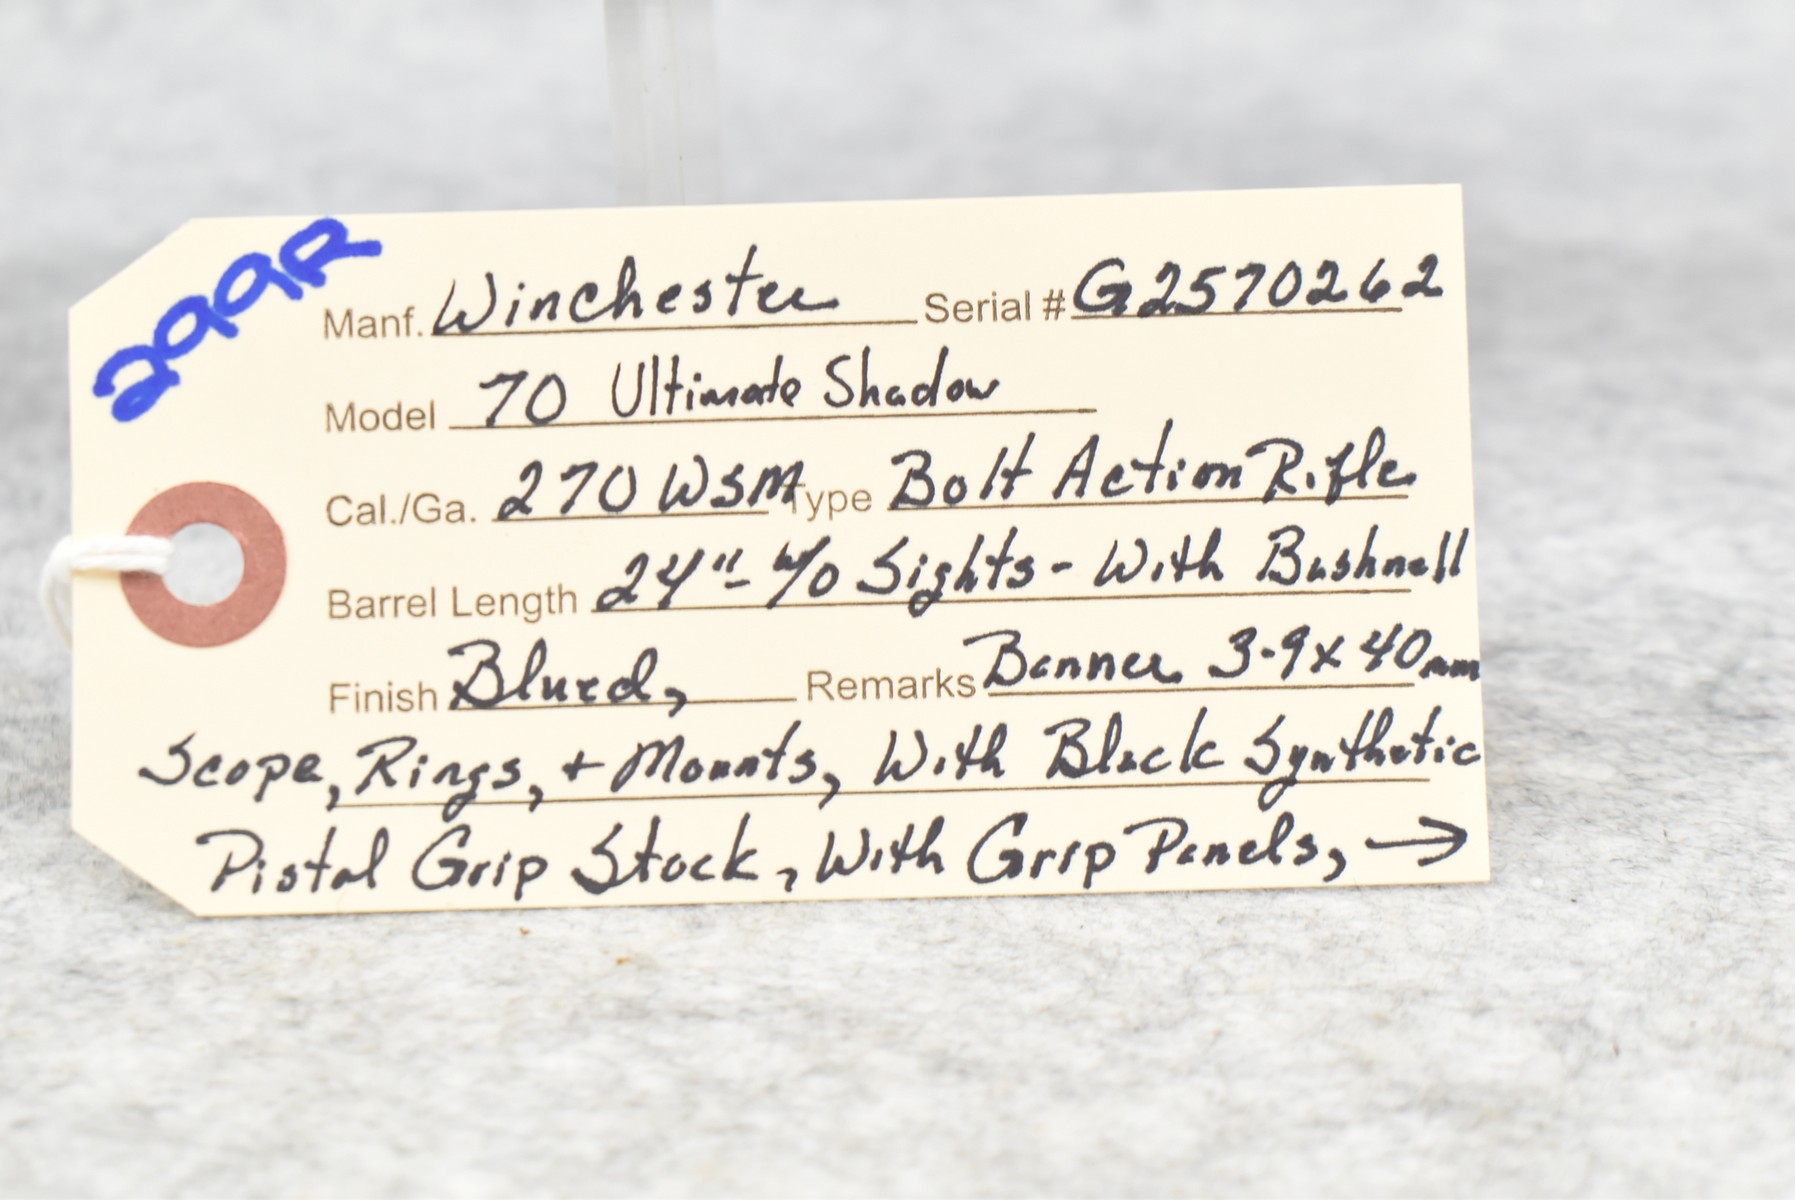 299R
Manf. Winchester Serial # G2570262
Model 70 Ultimate Shadow
Cal./Ga. 270 WSM Type Bolt Action Rifle
Barrel Length 24" - w/o Sights - With Bushnell
Finish Blued, Remarks Banner 3-9x40mm
Scope, Rings, + Mounts, With Black Synthetic
Pistol Grip Stock, With Grip Panels, →